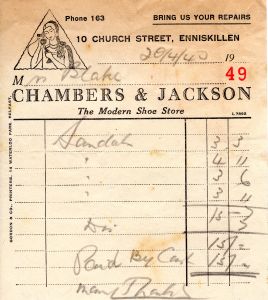 Phone 163 BRING US YOUR REPAIRS
10 CHURCH STREET, ENNISKILLEN
29/4/40 19
Mrs Blake 49
CHAMBERS & JACKSON
The Modern Shoe Store
Sandals 3 3
" 4 11
" 3 6
" 3 4
15 -
Dis
15/-
Paid By Cash 15/-
Many Thanks
GORDON & CO., PRINTERS, 14 WATERLOO PARK, BELFAST.